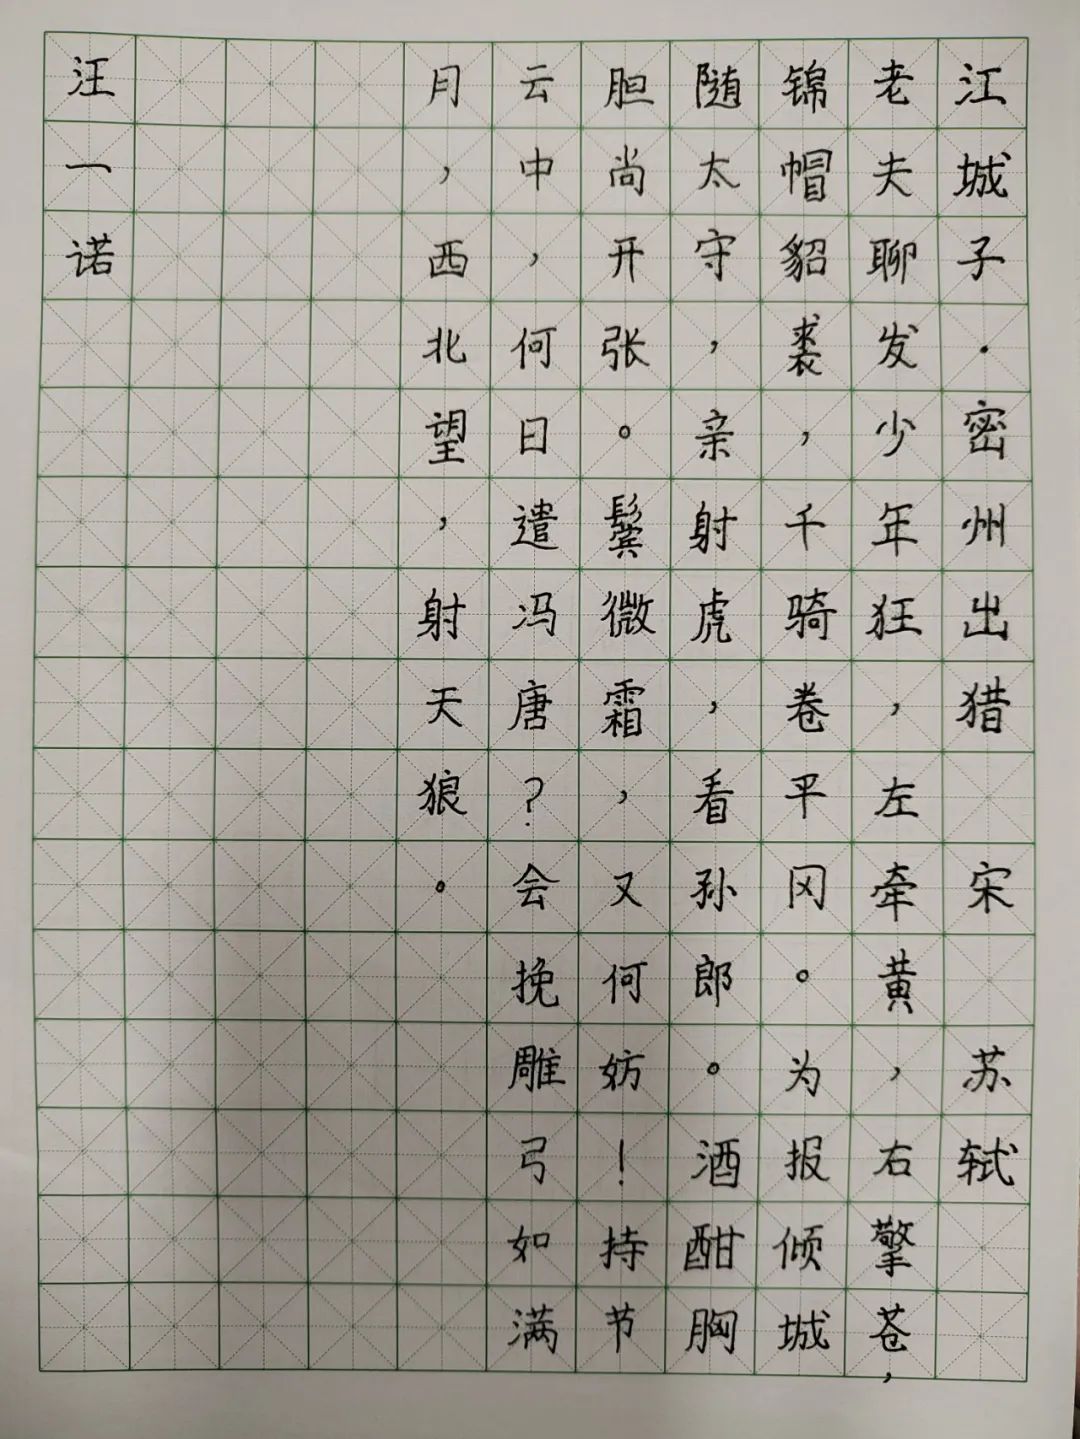 江城子·密州出猎 宋 苏轼
老夫聊发少年狂，左牵黄，右擎苍，
锦帽貂裘，千骑卷平冈。为报倾城
随太守，亲射虎，看孙郎。酒酣胸
胆尚开张。鬓微霜，又何妨！持节
云中，何日遣冯唐？会挽雕弓如满
月，西北望，射天狼。
汪一诺